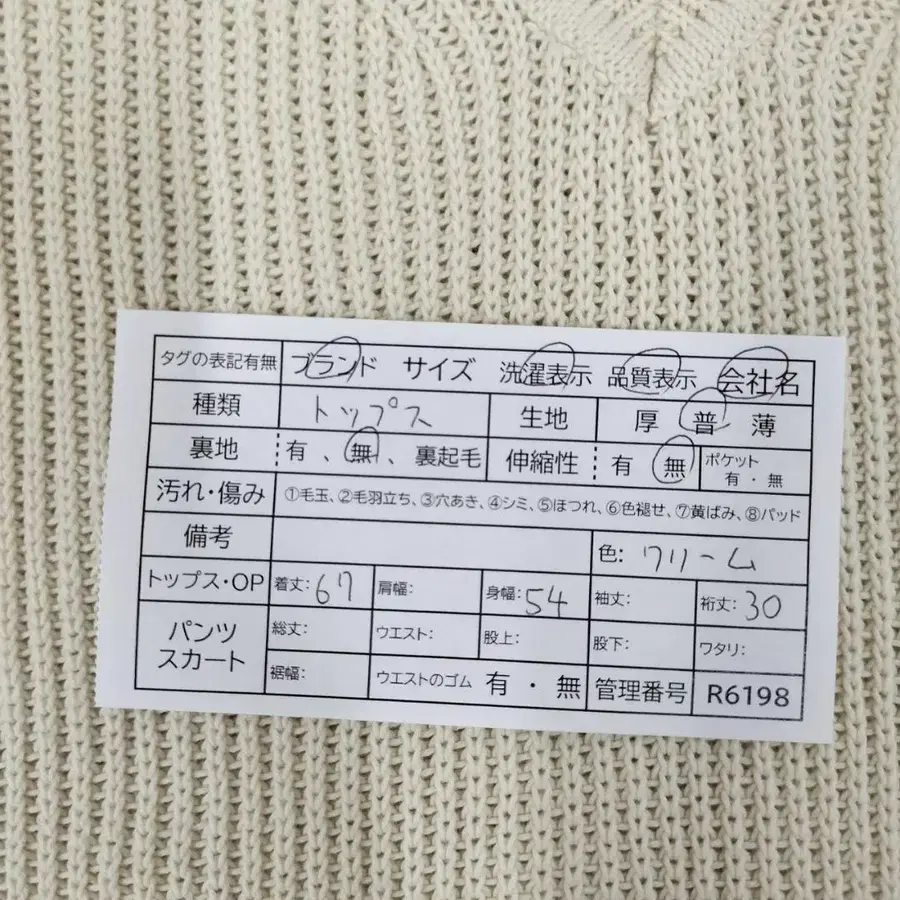 タグの表記有無 ブランド サイズ 洗濯表示 品質表示 会社名
種類 トップス 生地 厚 普 薄
裏地 有 、無、裏起毛 伸縮性 有 無 ポケット 有・無
汚れ・傷み ①毛玉、②毛羽立ち、③穴あき、④シミ、⑤ほつれ、⑥色褪せ、⑦黄ばみ、⑧パッド
備考 色: クリーム
トップス・OP 着丈:67 肩幅: 身幅:54 袖丈: 裄丈:30
パンツ スカート 総丈: ウエスト: 股上: 股下: ワタリ:
裾幅: ウエストのゴム 有・無 管理番号 R6198